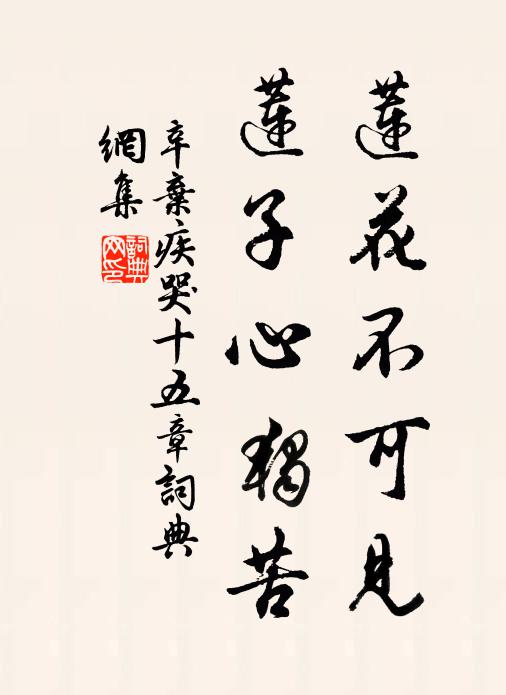 蓮花不可見
蓮子心獨苦
辛棄疾哭十五章詞典
網集
詞典
网印